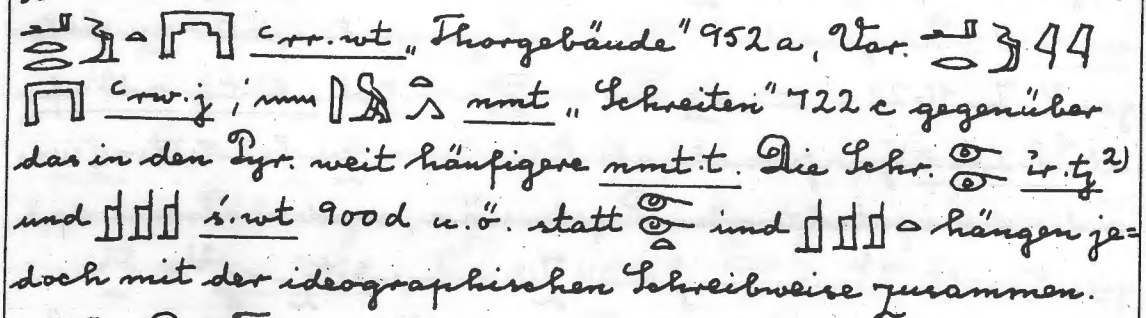 ꜥrr.wt „Thorgebäude" 952 a, Var.
ꜥrw.j; nmt „Schreiten" 722 c gegenüber
das in den Pyr. weit häufigere nmt.t. Die Schr. ir.tj 2)
und ś.wt 900 d u. ö. statt und hängen je=
doch mit der ideographischen Schreibweise zusammen.